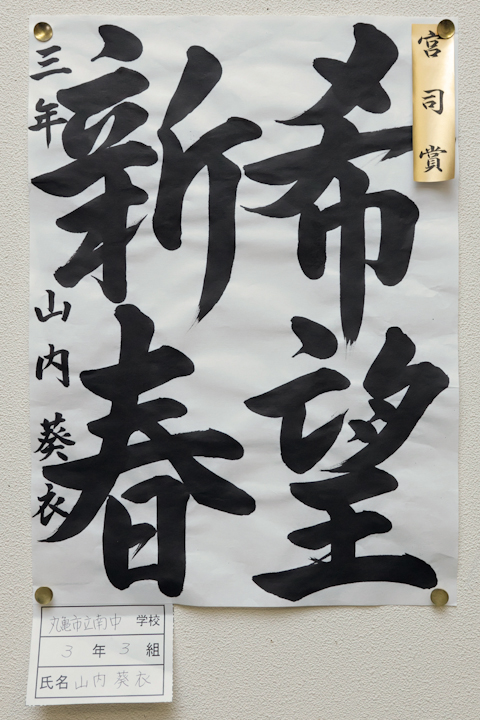 宮司賞
希望
新春
三年 山内葵衣
丸亀市立南中 学校
3 年 3 組
氏名 山内葵衣